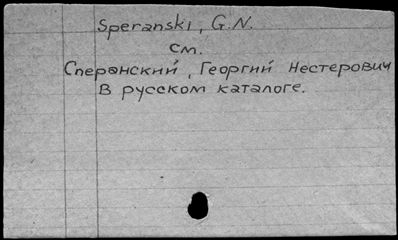 Speranski, G.N.
см.
Сперанский, Георгий Нестерович
в русском каталоге.